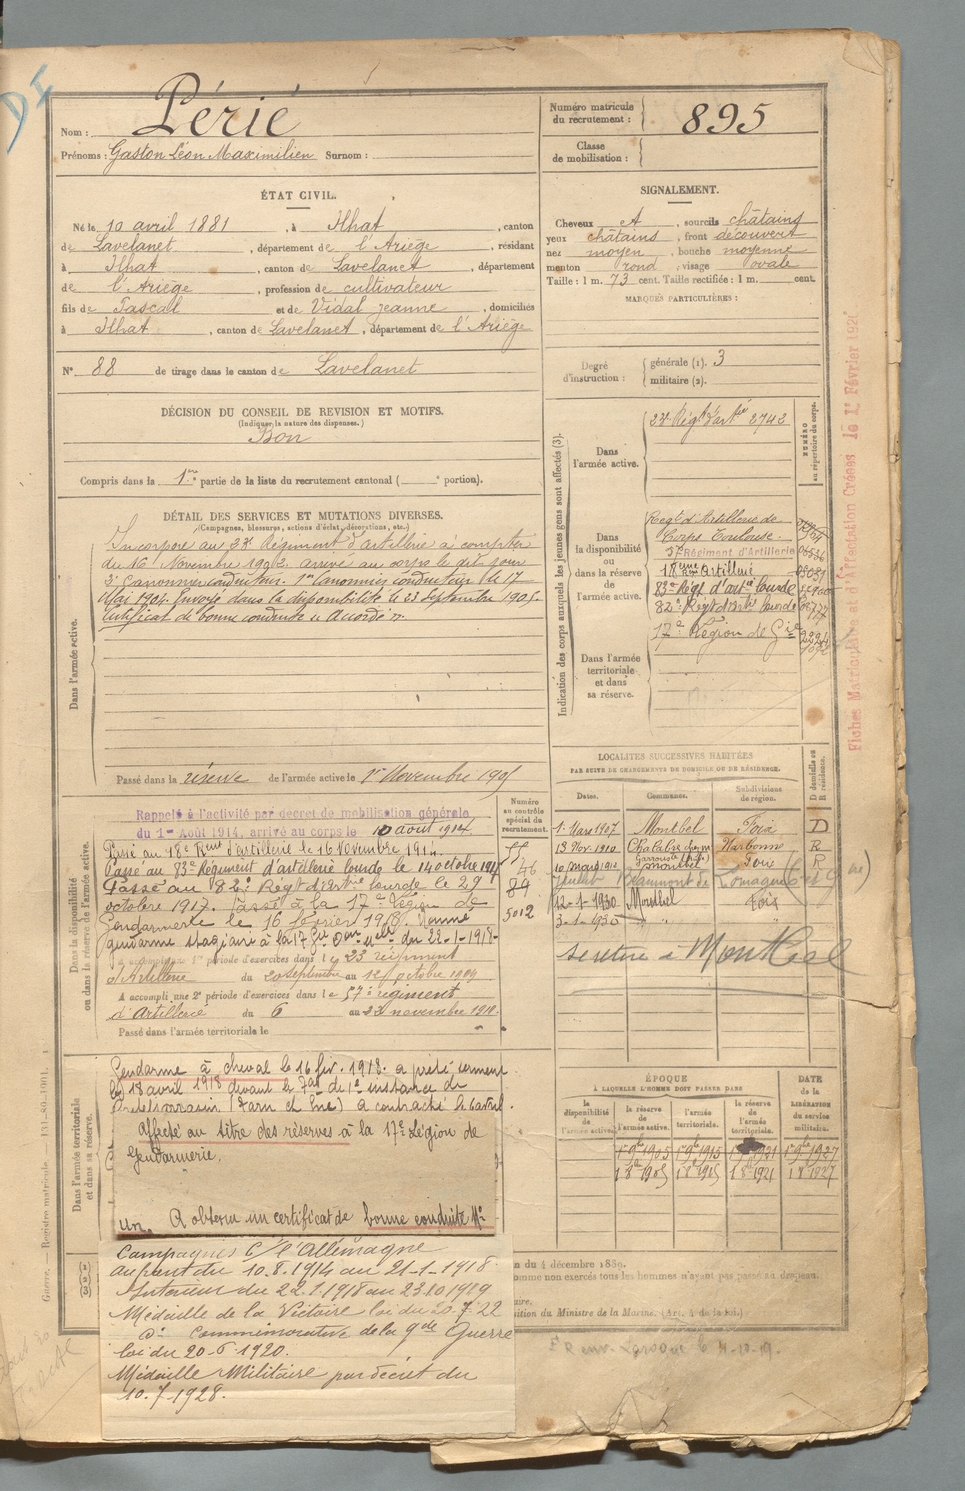 DI
Nom : Périé
Prénoms : Gaston Léon Maximilien Surnom :
Numéro matricule du recrutement : 895
Classe de mobilisation :
ÉTAT CIVIL.
Né le 10 avril 1881, à Ilhat, canton
de Lavelanet, département de l'Ariège, résidant
à Ilhat, canton de Lavelanet, département
de l'Ariège, profession de cultivateur
fils de Pascal et de Vidal Jeanne, domiciliés
à Ilhat, canton de Lavelanet, département de l'Ariège
N° 88 de tirage dans le canton de Lavelanet
SIGNALEMENT.
Cheveux, sourcils châtains
yeux châtains, front découvert
nez moyen, bouche moyenne
menton rond, visage ovale
Taille : 1 m. 73 cent. Taille rectifiée : 1 m. cent.
MARQUES PARTICULIÈRES :
Degré d'instruction : générale (1). 3
militaire (2).
DÉCISION DU CONSEIL DE REVISION ET MOTIFS.
(Indiquer la nature des dispenses.)
Bon
Compris dans la 1re partie de la liste du recrutement cantonal ( portion).
DÉTAIL DES SERVICES ET MUTATIONS DIVERSES.
(Campagnes, blessures, actions d'éclat, décorations, etc.)
Dans l'armée active.
Incorporé au 23e Régiment d'artillerie à compter
du 16 Novembre 1902. arrivé au corps le dit jour
2e Canonnier conducteur. 1er Canonnier conducteur le 17
Mai 1904. Envoyé dans la disponibilité le 23 Septembre 1905.
Certificat de bonne conduite "Accordé".
Passé dans la réserve de l'armée active le 1er Novembre 1905
Indication des corps auxquels les jeunes gens sont affectés (3).
NUMÉRO au répertoire du corps.
Dans l'armée active.
23e Régt d'artie 2742
Dans la disponibilité ou dans la réserve de l'armée active.
Regt d'Artillerie de
Corps Toulouse.
57e Régiment d'Artillerie
18eme Artillerie
83e Régt d'artie lourde
82e Régt d'artie lourde
17e Région de Gie
Dans l'armée territoriale et dans sa réserve.
Fiches Matriculaire et d'Affectation Créées le 1er Février 192
LOCALITÉS SUCCESSIVES HABITÉES
PAR SUITE DE CHANGEMENTS DE DOMICILE OU DE RÉSIDENCE.
Dates. Communes. Subdivisions de région. D domicile ou R résidence.
1. Mars 1907 Montbel Foix D
13 Nov. 1910 Chalabre Narbonne R
10 mars 1912 Montbel Foix R
Beaumont de Lomagne
12-1-1930 Montbel Foix
3-1-1930 " "
se retire à Montbel
Dans la disponibilité ou dans la réserve de l'armée active.
Numéro au contrôle spécial du recrutement.
Rappelé à l'activité par décret de mobilisation générale
du 1er Août 1914, arrivé au corps le 10 août 1914
Passé au 18e Rgment d'artillerie le 16 Novembre 1914.
Passé au 83e Régiment d'artillerie lourde le 14 octobre 1917
Passé au 82e Régt d'artie lourde le 29
octobre 1917. Passé à la 17e Légion de
Gendarmerie le 16 février 1918. Nommé
gendarme stagiaire à la 17 du 22-1-1918.
A accompli une 1re période d'exercices dans le 23 régiment
d'Artillerie du 20 septembre au 12 octobre 1909
A accompli une 2e période d'exercices dans le 57e régiment
d'Artillerie du 6 au 22 novembre 1911.
Passé dans l'armée territoriale le
46
89
5012
Dans l'armée territoriale et dans sa réserve.
Gendarme à cheval le 16 fév. 1918. a prêté serment
le 18 avril 1918 devant le de 1e instance de
(Tarn et Gne) a contracté
Affecté au titre des réserves à la 17e Légion de
Gendarmerie.
Un. A obtenu un certificat de bonne conduite
ÉPOQUE
À LAQUELLE L'HOMME DOIT PASSER DANS
DATE de la LIBÉRATION du service militaire.
la disponibilité de l'armée active. la réserve de l'armée active. l'armée territoriale. la réserve de l'armée territoriale.
1er 9bre 1905 1er 9bre 1915 1er 9bre 1921 1er 9bre 1927
1 8bre 1905 1 8bre 1915 1 8bre 1921 1 8bre 1927
Campagnes C/ l'Allemagne
Aux front du 10.8.1914 au 21-1-1918.
Intérieur du 22.1.1918 au 23.10.1919
Médaille de la Victoire loi du 20.7.22
do Commémorative de la Gde Guerre
loi du 20-6 1920.
Médaille Militaire par décret du
10.7-1928.
n du 4 décembre 1889.
omme non exercés tous les hommes n'ayant pas passé au drapeau.
aire.
sition du Ministre de la Marine. (Art. 4 de la loi.)
Guerre. — Registre matricule. — 131-80-1901.